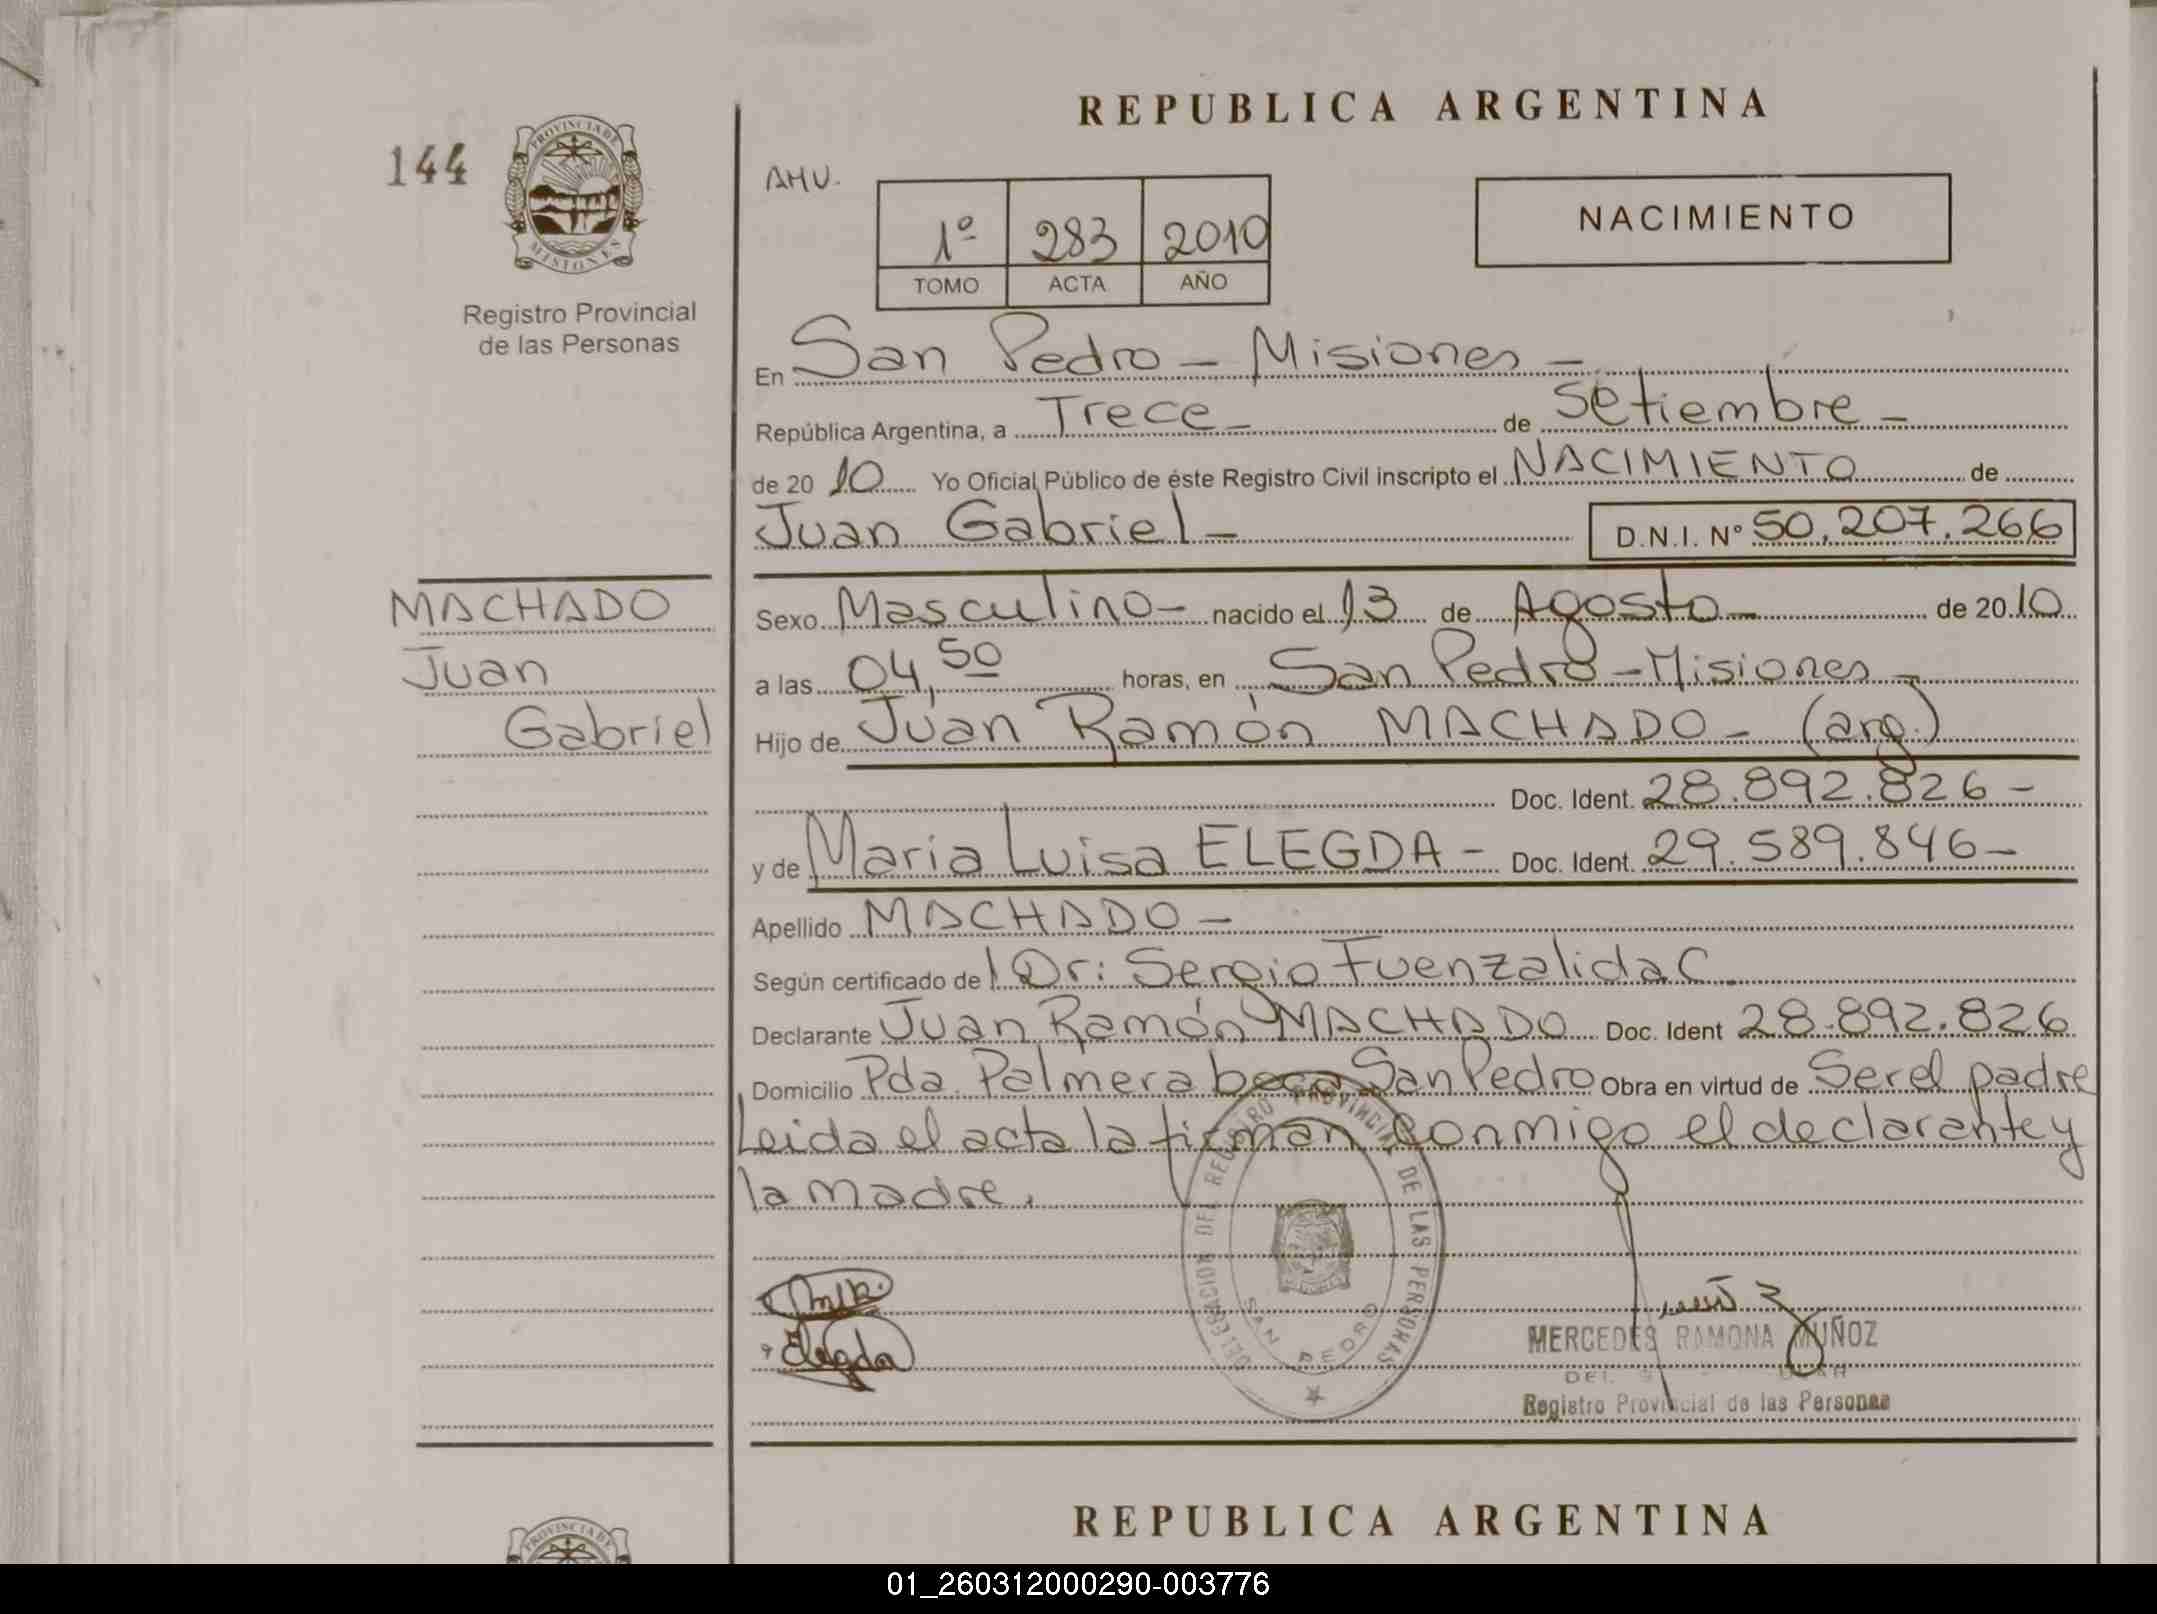 REPUBLICA ARGENTINA
144
PROVINCIA DE
MISIONES
Registro Provincial
de las Personas
AMU.
1º 283 2010
TOMO ACTA AÑO
NACIMIENTO
En San Pedro - Misiones -
República Argentina, a Trece - de Setiembre -
de 20 10 Yo Oficial Público de éste Registro Civil inscripto el NACIMIENTO de
Juan Gabriel - D.N.I. Nº 50.207.266
MACHADO
Juan
Gabriel
Sexo Masculino - nacido el 13 de Agosto - de 20 10
a las 04,50 horas, en San Pedro - Misiones -
Hijo de Juan Ramón MACHADO - (arg.)
Doc. Ident. 28.892.826 -
y de Maria Luisa ELEGDA - Doc. Ident. 29.589.846 -
Apellido MACHADO -
Según certificado de l Dr: Sergio Fuenzalida C
Declarante Juan Ramón MACHADO Doc. Ident 28.892.826
Domicilio Pda. Palmera boca San Pedro Obra en virtud de Ser el padre
Leida el acta la firman conmigo el declarante y
la madre.
DELEGACION DEL REGISTRO PROVINCIAL DE LAS PERSONAS
SAN PEDRO
Elegda
MERCEDES RAMONA MUÑOZ
Registro Provincial de las Personas
REPUBLICA ARGENTINA
PROVINCIA DE
01_260312000290-003776